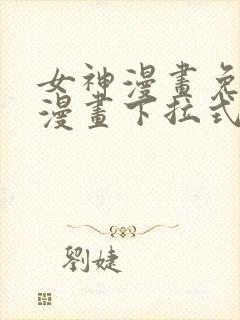 女神漫畫免
漫畫下拉式
劉婕